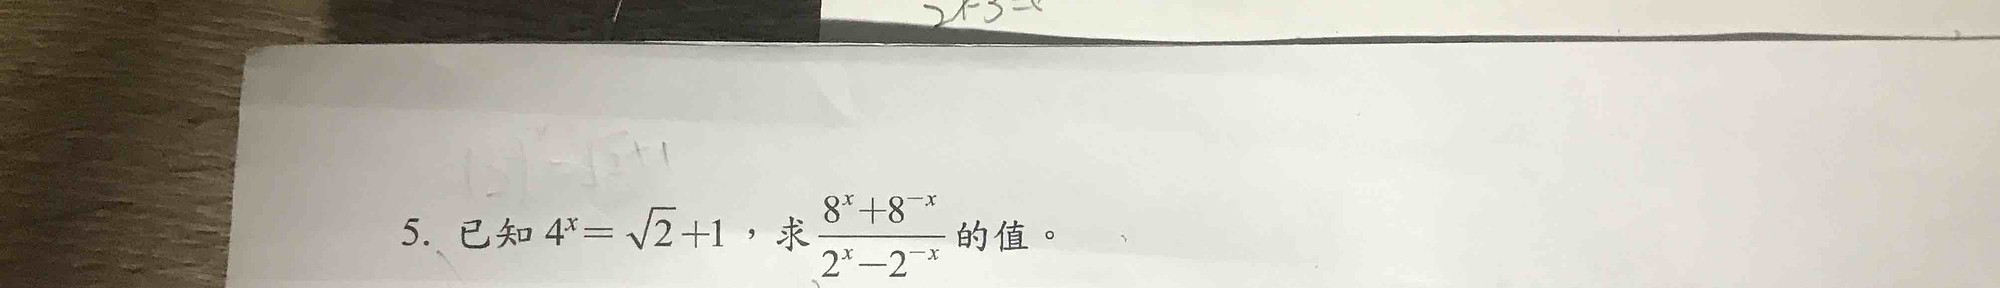 5. 已知 4ˣ = √2 + 1，求 (8ˣ + 8⁻ˣ)/(2ˣ − 2⁻ˣ) 的值。